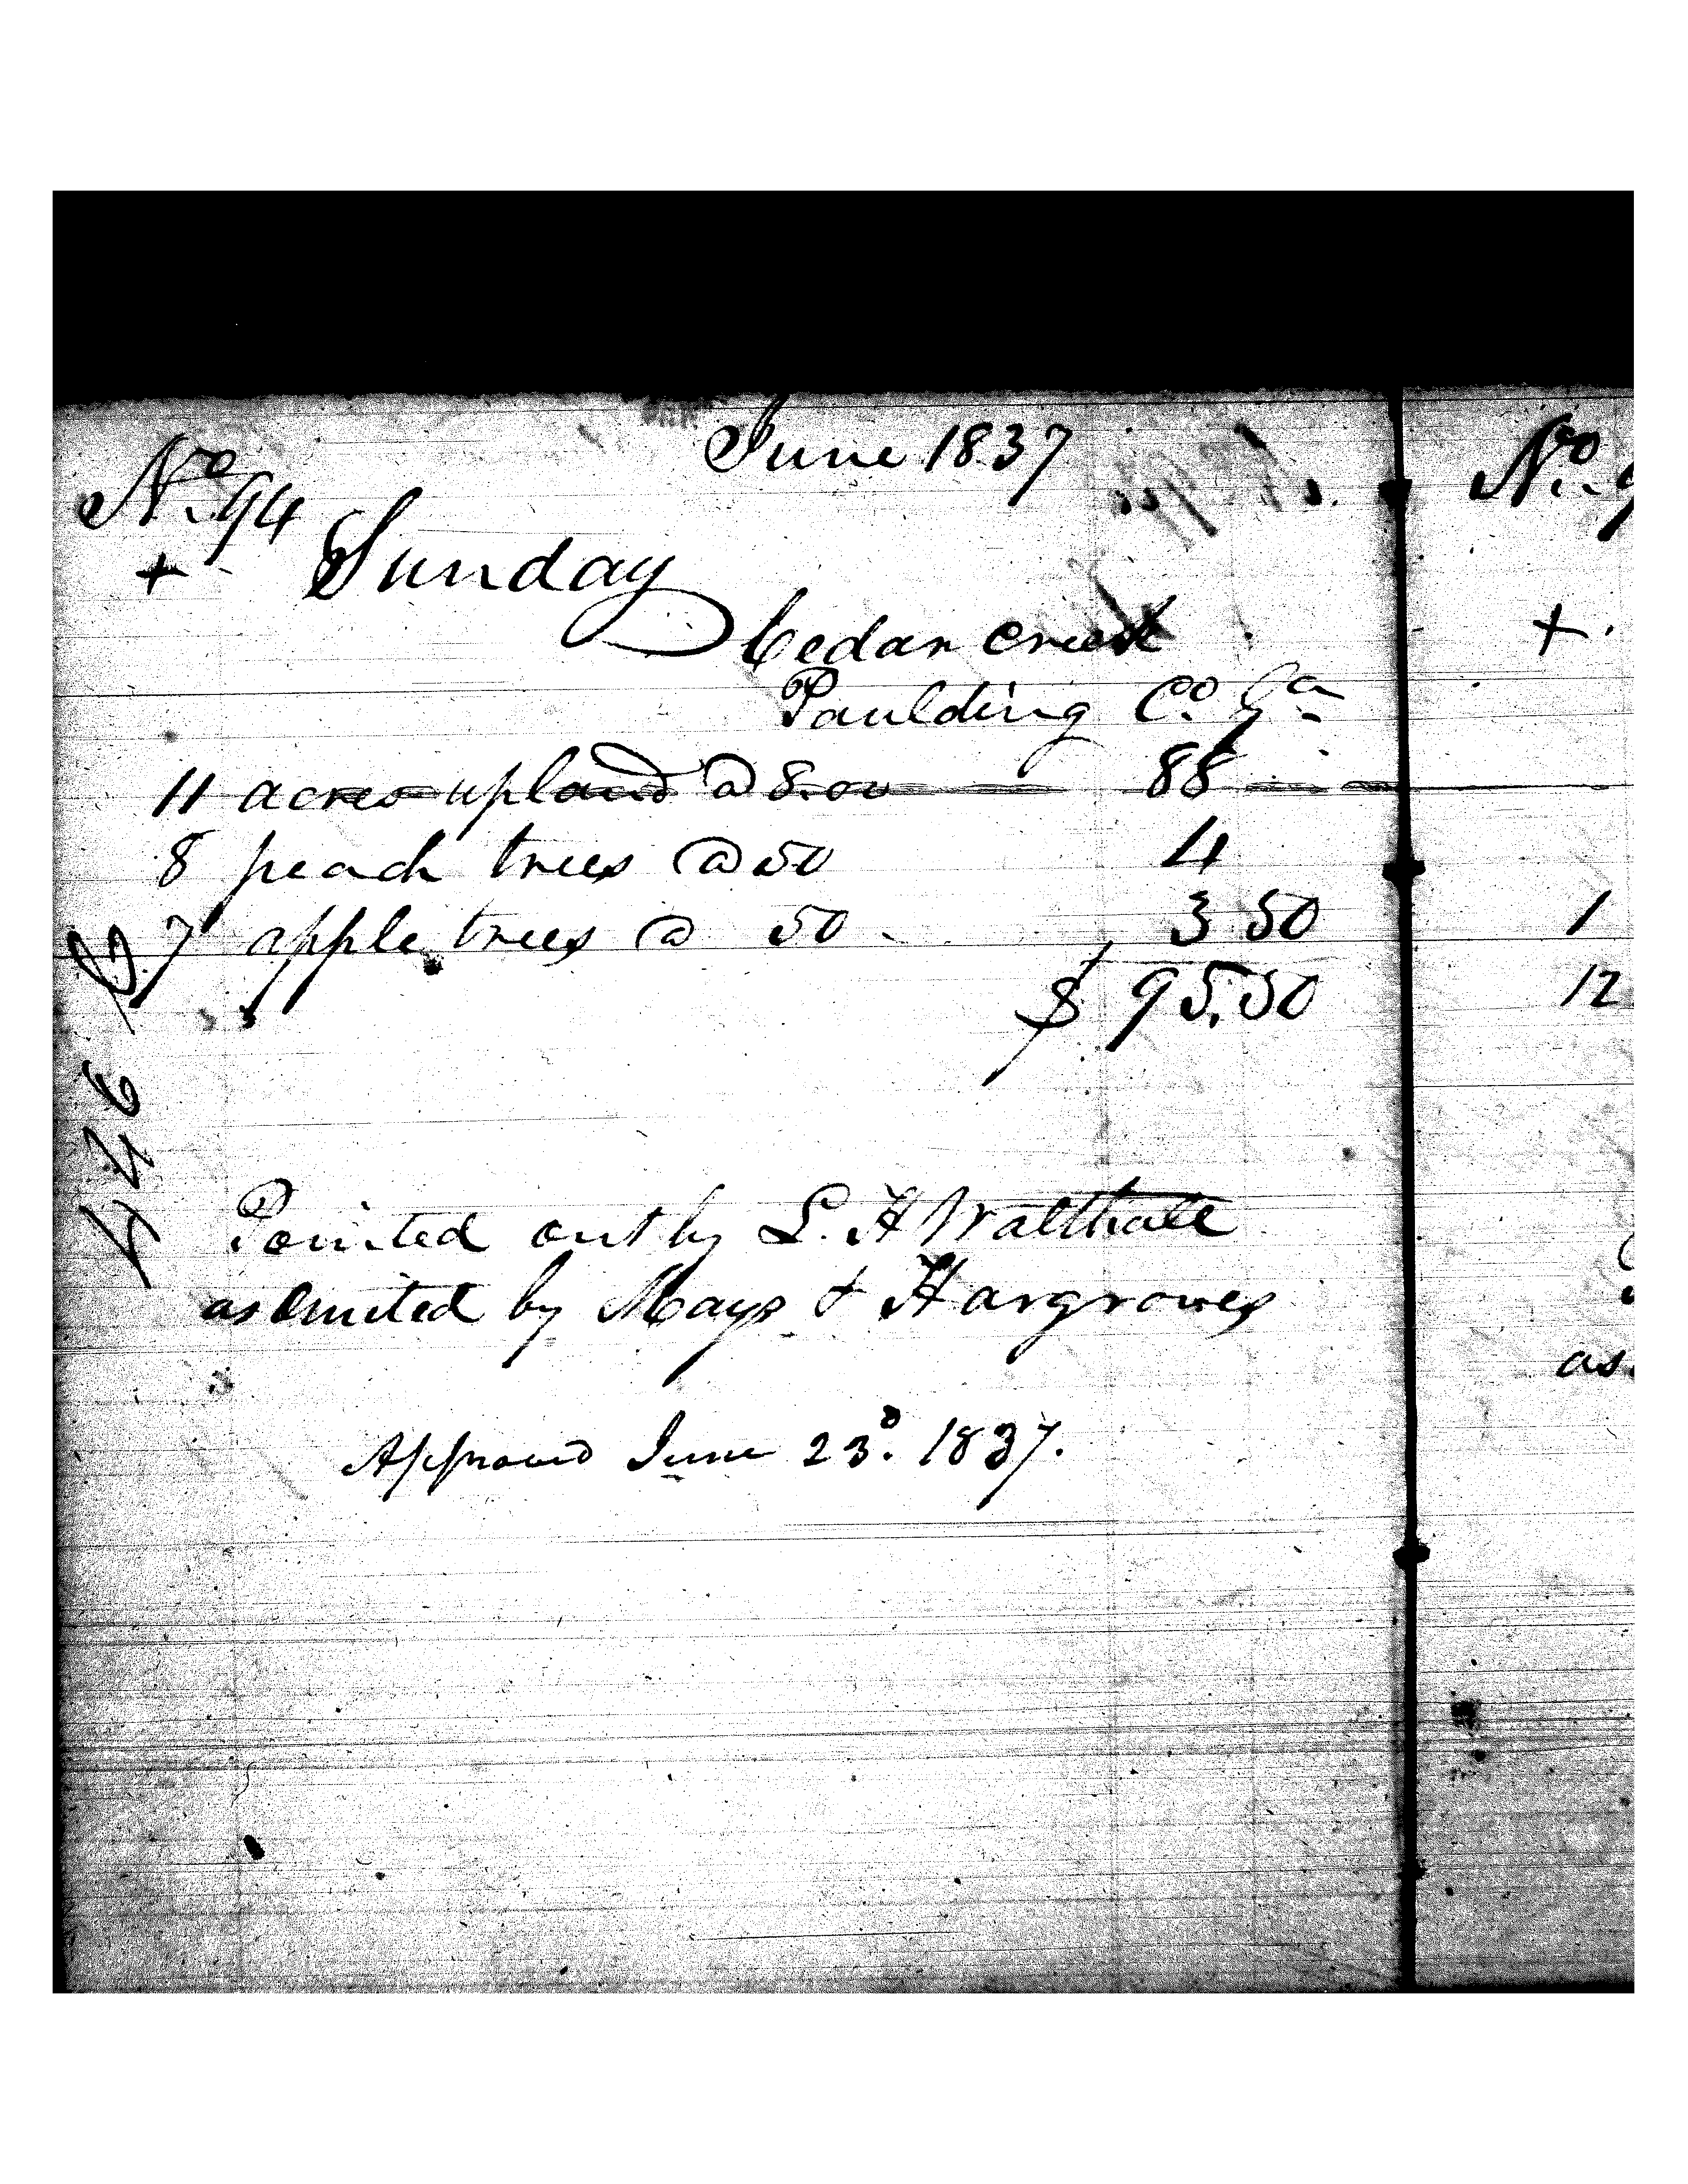 June 1837
No. 94
+ Sunday
Cedar Creek
Paulding Co. Ga
11 acres upland @ 8.00 88
8 peach trees @ 50 4
7 apple trees @ 50 3 50
$ 95.50
Pointed out by L. H Walthall
as omited by Mays & Hargroves
Approved June 23d. 1837.
No. 9
+
1
12
as